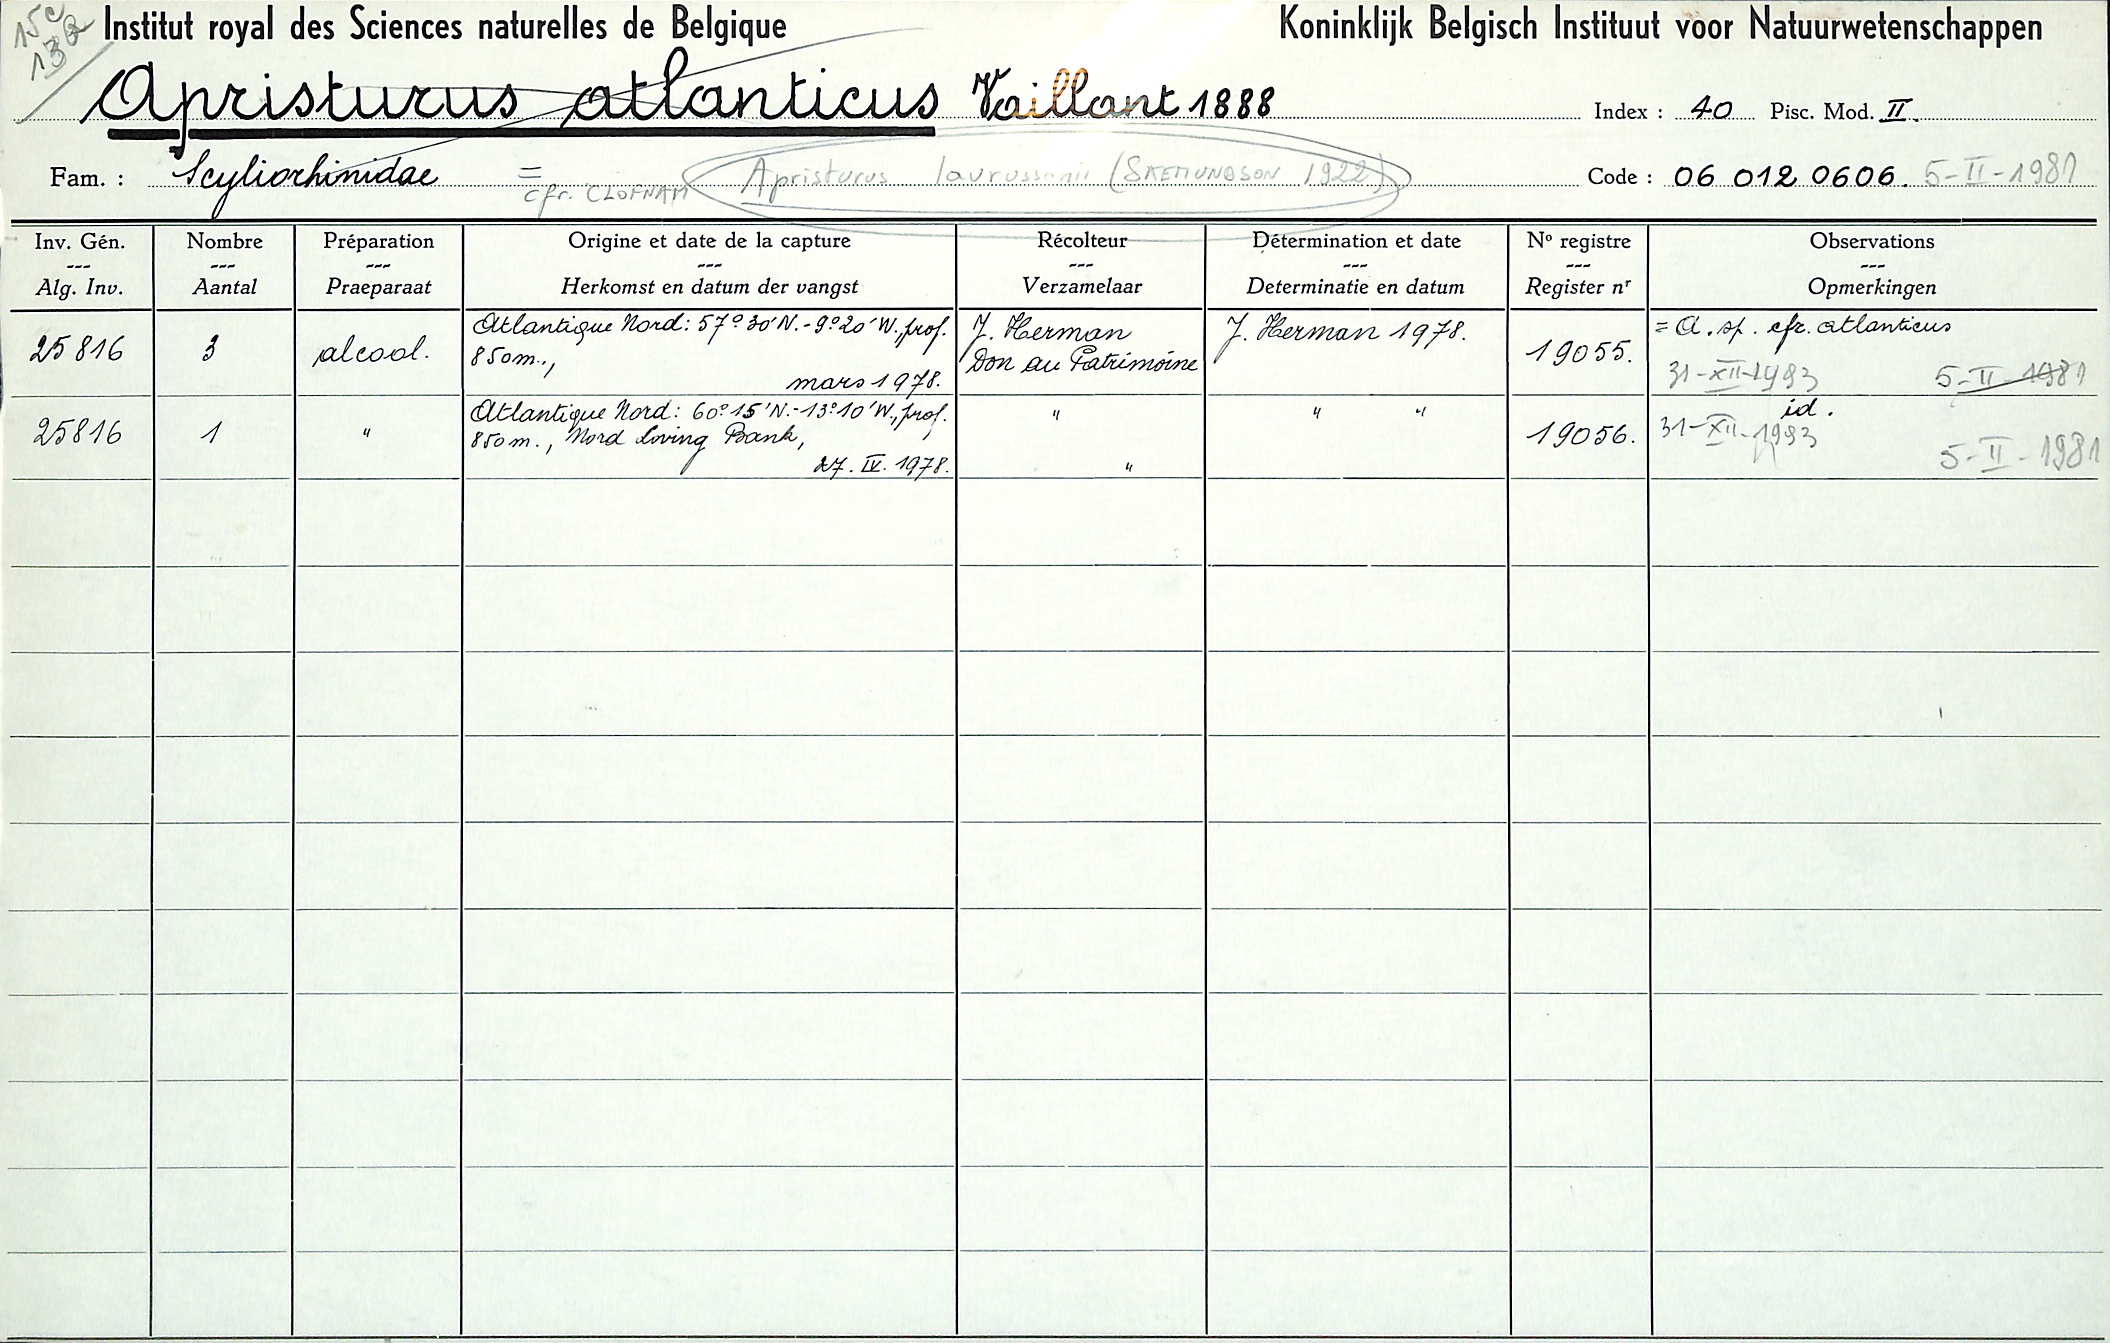 15c
13a
Institut royal des Sciences naturelles de Belgique Koninklijk Belgisch Instituut voor Natuurwetenschappen
Apristurus atlanticus Vaillant 1888 Index : 40 Pisc. Mod. II.
Fam. : Scyliorhinidae = Apristurus laurussonii (SAEMUNDSON 1922) Code : 06 012 0606. 5-II-1981
cfr. CLOFNAM
Inv. Gén. Nombre Préparation Origine et date de la capture Récolteur Détermination et date No registre Observations
--- --- --- --- --- --- --- ---
Alg. Inv. Aantal Praeparaat Herkomst en datum der vangst Verzamelaar Determinatie en datum Register nr Opmerkingen
Atlantique Nord: 57° 30' N.- 9° 20' W., prof. J. Herman J. Herman 1978. = A. sp. cfr. atlanticus
25816 3 alcool. 850m., Don au Patrimoine 19055.
mars 1978. 31-XII-1983 5-II-1981
Atlantique Nord: 60° 15' N.- 13° 10' W., prof. " " " id.
25816 1 " 850m., Nord Loving Bank, 19056. 31-XII-1983
27. IV. 1978. " 5-II-1981